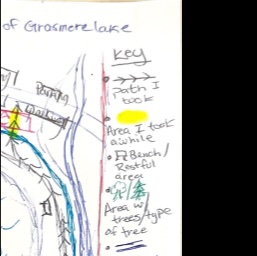 of Grasmere lake
Key
Path I
took
Area I took
awhile
Bench/
Restful
area
Area w/
trees/type
of tree
Parking